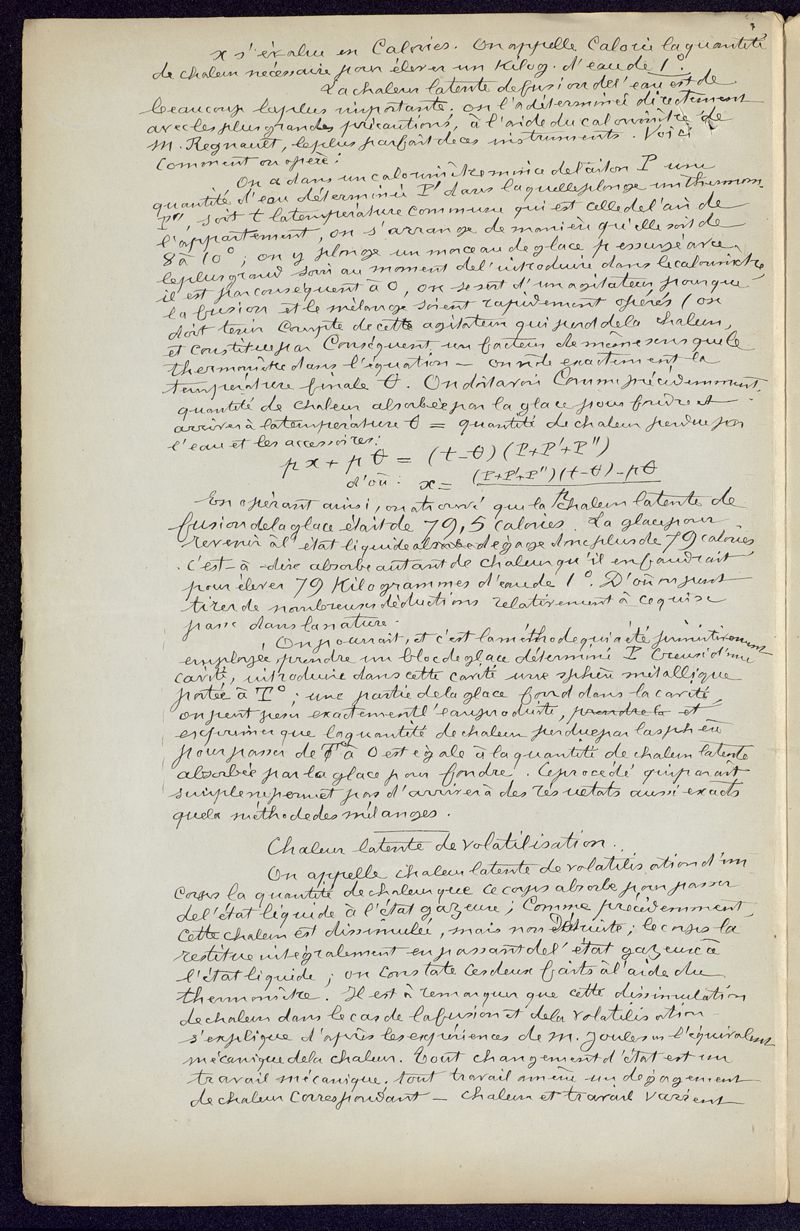 x s'évalue en Calories. On appelle Calorie la quantité
de chaleur nécessaire pour élever un Kilog. d'eau de 1°.
La chaleur latente de fusion de l'eau est de
beaucoup la plus importante. on l'a déterminée directement
avec les plus grandes précautions, à l'aide du calorimètre de
M. Regnault, le plus parfait de ces instruments. Voici
comment on opère :
On a dans un calorimètre mince de laiton P une
quantité d'eau déterminée P' dans laquelle plonge un thermom.
P'', soit t la température commune qui est celle de l'air de
l'appartement, on s'arrange de manière qu'elle soit de
8 à 10° ; on y plonge un morceau de glace p essuyé avec
le plus grand soin au moment de l'introduire dans le calorimètre,
il est par conséquent à 0, on se sert d'un agitateur pour que
la fusion et le mélange soient rapidement opérés (on
doit tenir compte de cette agitateur qui perd de la chaleur,
et constitue par Conséquent un facteur de même sens que le
thermomètre dans l'équation — on note exactement la
température finale θ. On doit avoir Comme précédemment
quantité de chaleur absorbée par la glace pour fondre et
arriver à la température θ = quantité de chaleur perdue par
l'eau et les accessoires :
px + pθ = (t-θ) (P+P'+P'')
d'où : x = (P+P'+P'')(t-θ)-pθ
p
En opérant ainsi, on a trouvé que la chaleur latente de
fusion de la glace était de 79,5 calories. La glace pour
revenir à l'état liquide absorbe dégage donc plus de 79 calories
c'est-à-dire absorbe autant de chaleur qu'il en faudrait
pour élever 79 Kilogrammes d'eau de 1°. D'où on peut
tirer de nombreuses déductions relativement à ce qui se
passe dans la nature.
On pourrait, et c'est la méthode qui a été primitivement
employée, prendre un bloc de glace déterminé P creusé d'une
cavité, introduire dans cette cavité une sphère métallique
portée à T° ; une partie de la glace fond dans la cavité,
on peut peser exactement l'eau produite, prendre la et
exprimer que la quantité de chaleur perdue par la sphère
pour passer de T° à 0 est égale à la quantité de chaleur latente
absorbée par la glace pour fondre. Ce procédé qui paraît
simple ne permet pas d'arriver à des résultats aussi exacts
que la méthode des mélanges.
Chaleur latente de volatilisation.
On appelle chaleur latente de volatilisation d'un
Corps la quantité de chaleur que ce corps absorbe pour passer
de l'état liquide à l'état gazeux ; Comme précédemment,
cette chaleur est dissimulée, mais non Détruite ; le corps la
restitue intégralement en passant de l'état gazeux à
l'état liquide ; on constate ces deux faits à l'aide du
thermomètre. Il est à remarquer que cette dissimulation
de chaleur dans le cas de la fusion et de la volatilisation
s'explique d'après les expériences de M. Joule sur l'équivalent
mécanique de la chaleur. Tout changement d'état est un
travail mécanique. tout travail amène un dégagement
de chaleur correspondant — chaleur et travail varient